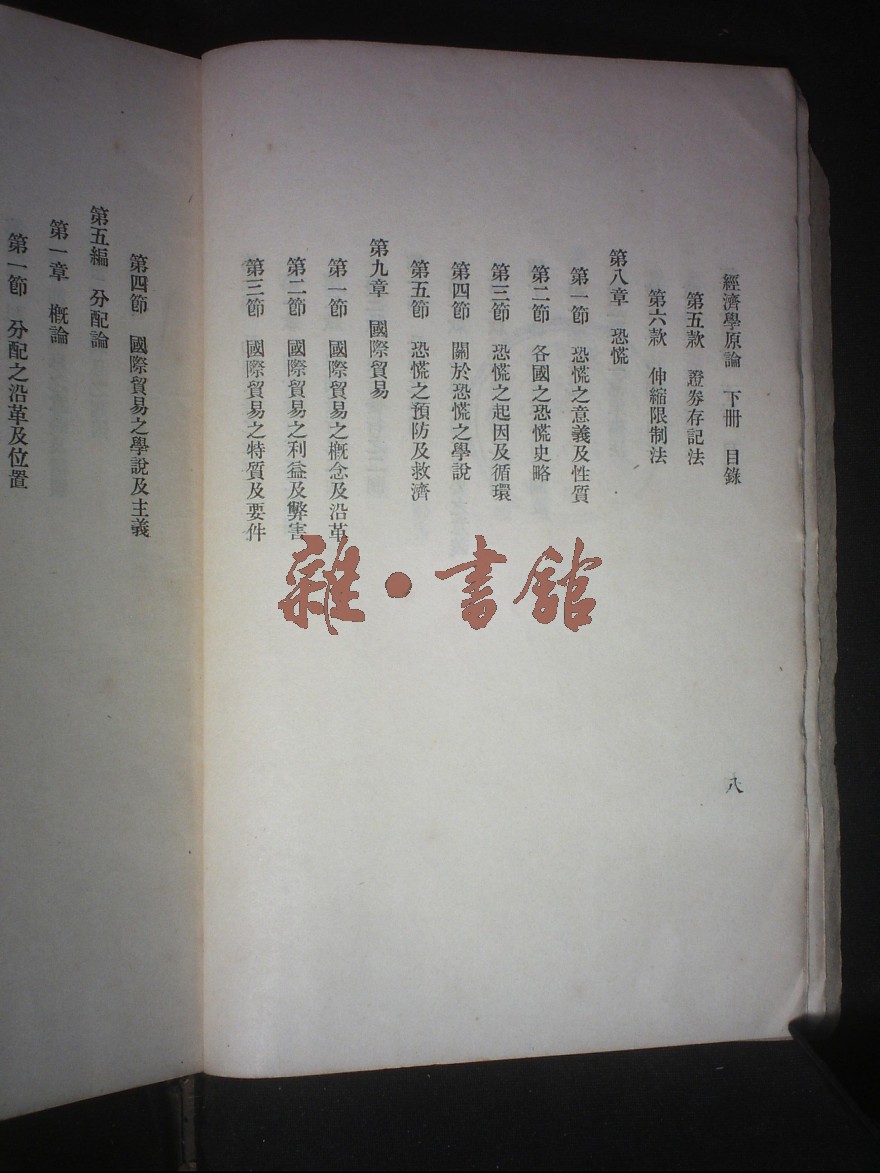 經濟學原論 下册 目錄
八
第五款 證券存記法
第六款 伸縮限制法
第八章 恐慌
第一節 恐慌之意義及性質
第二節 各國之恐慌史略
第三節 恐慌之起因及循環
第四節 關於恐慌之學說
第五節 恐慌之預防及救濟
第九章 國際貿易
第一節 國際貿易之概念及沿革
第二節 國際貿易之利益及弊害
第三節 國際貿易之特質及要件
第四節 國際貿易之學說及主義
第五編 分配論
第一章 概論
第一節 分配之沿革及位置
雜·書館